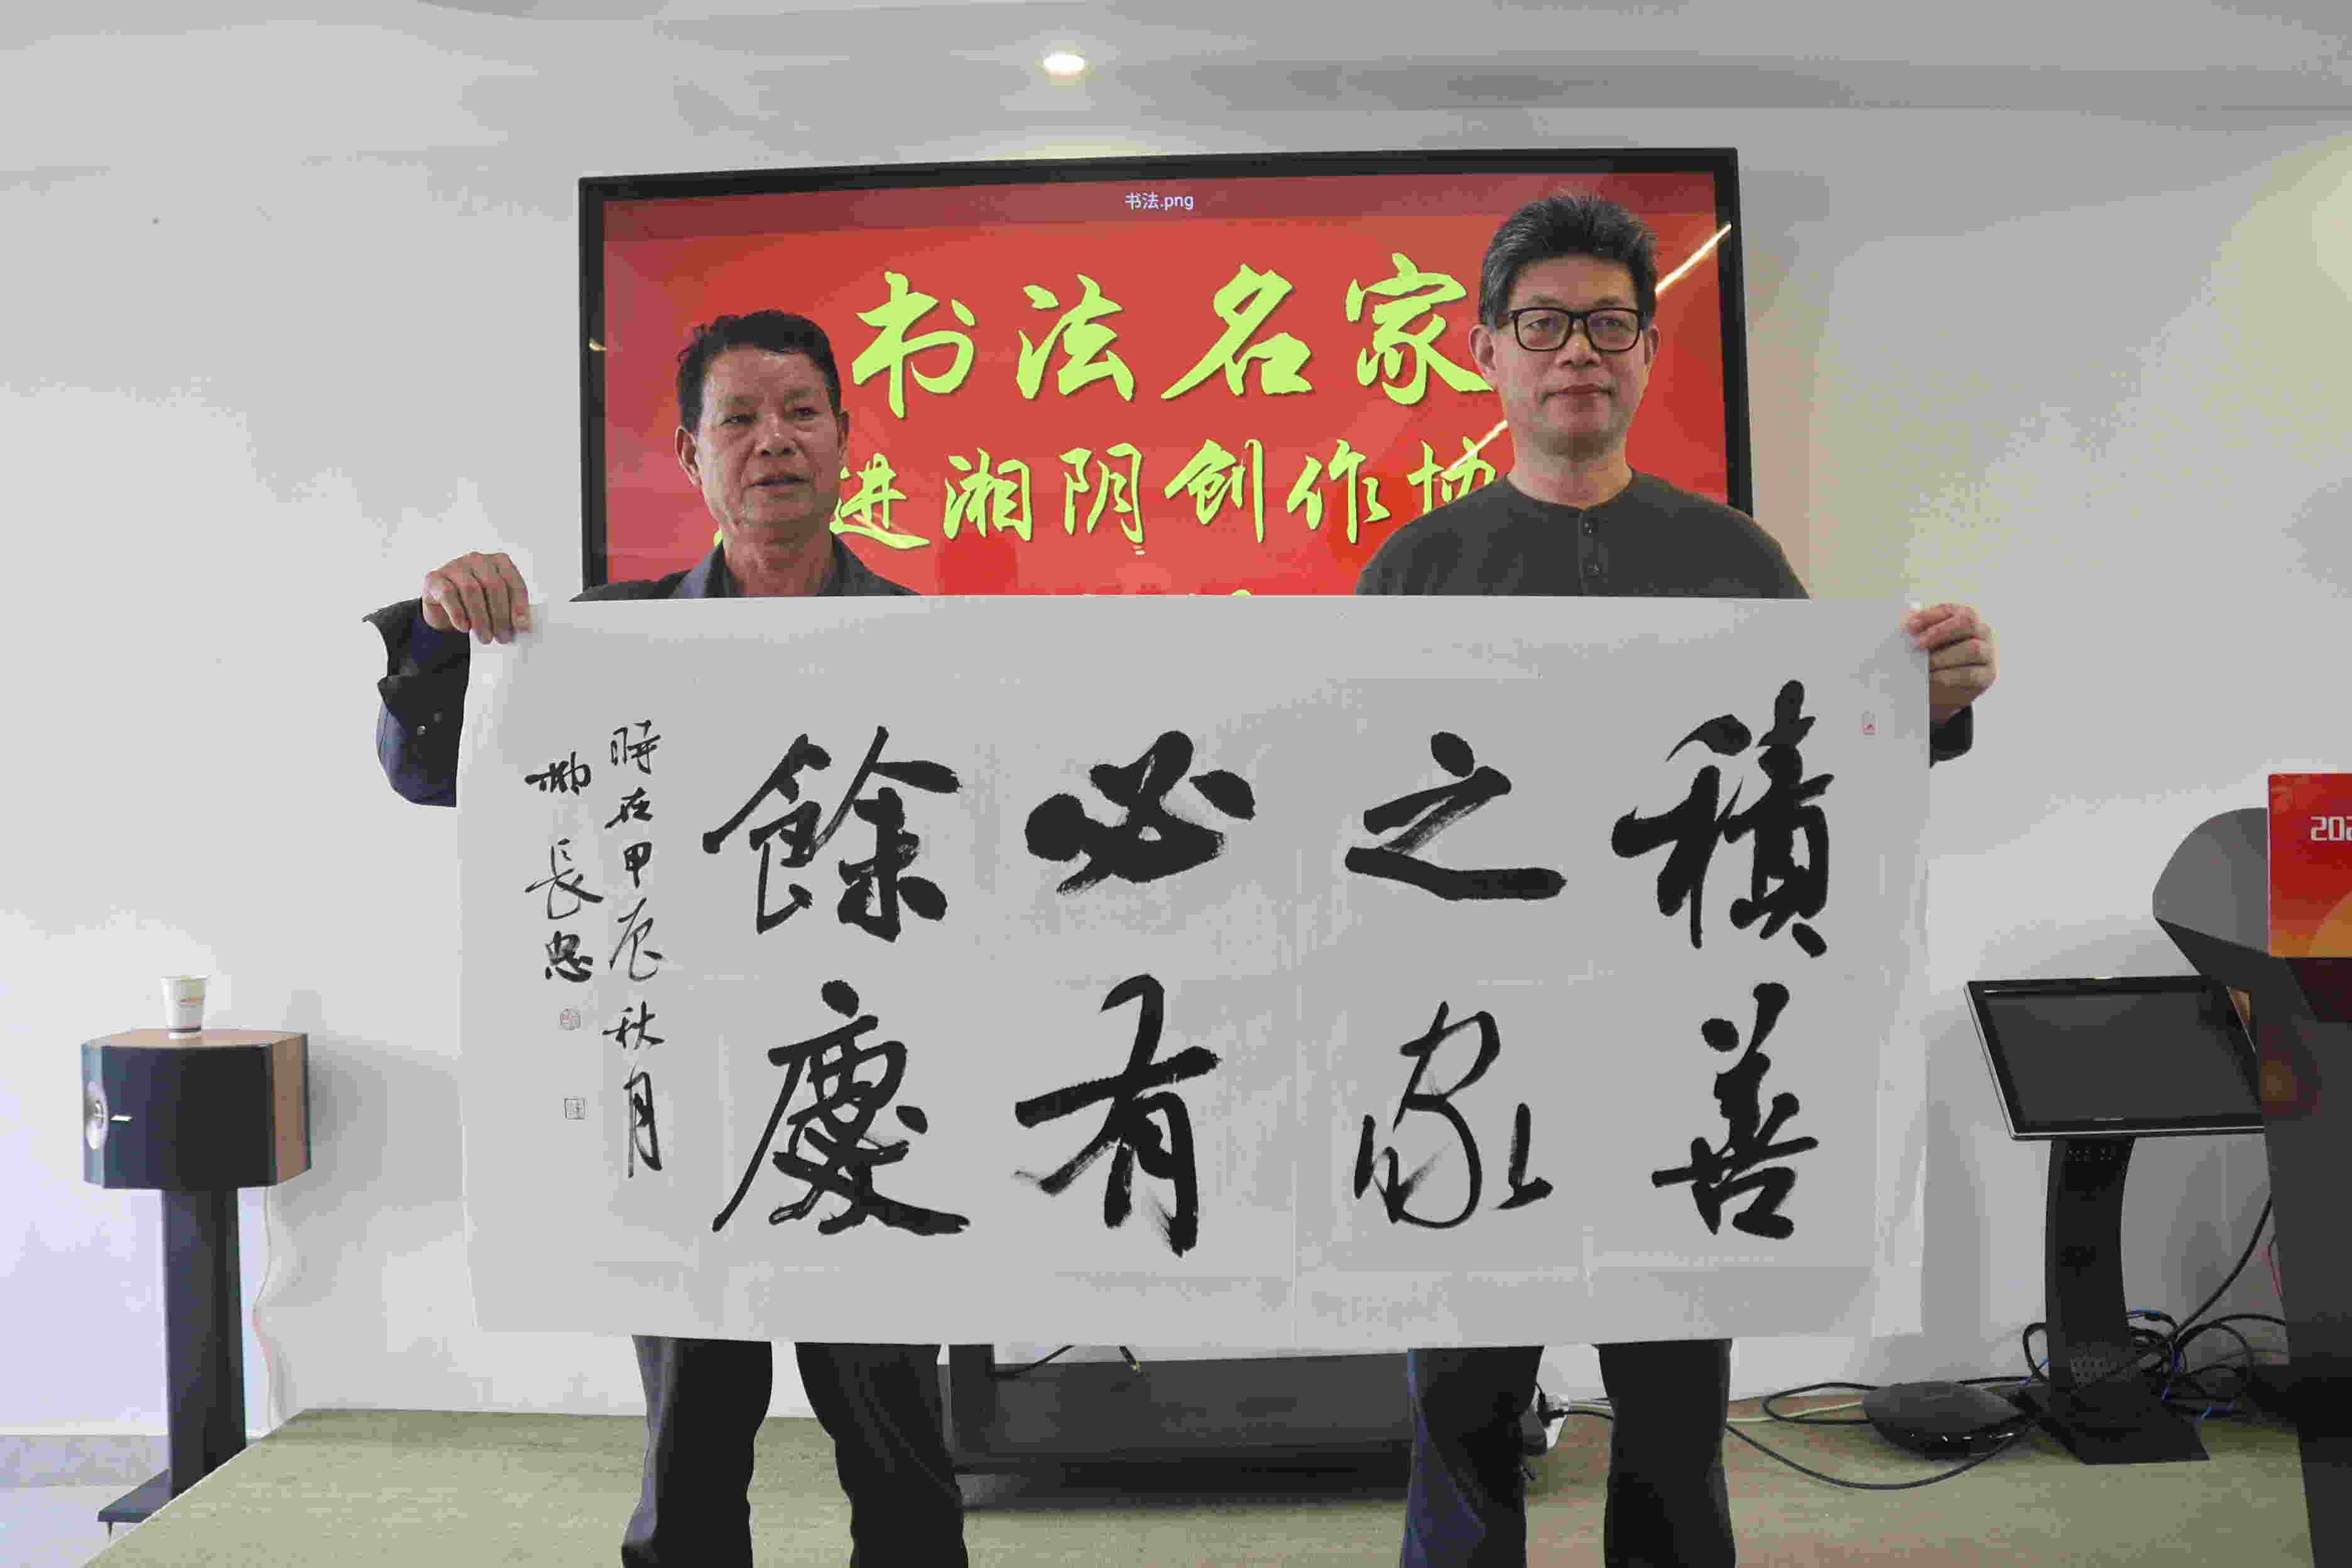 书法.png
书法名家
进湘阴创作
積善
之家
必有
餘慶
時在甲辰秋月
柳長忠
202